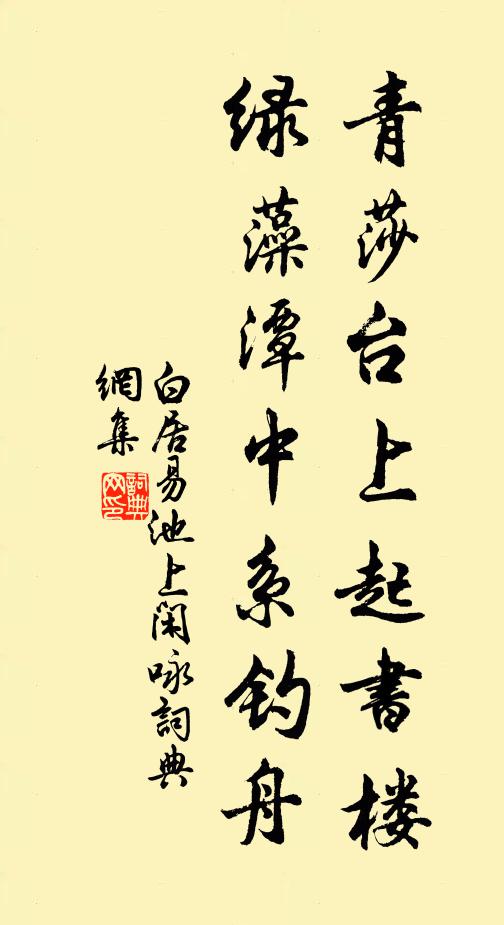 青莎台上起书楼
绿藻潭中系钓舟
白居易池上闲咏詞典
網集
詞典
网印